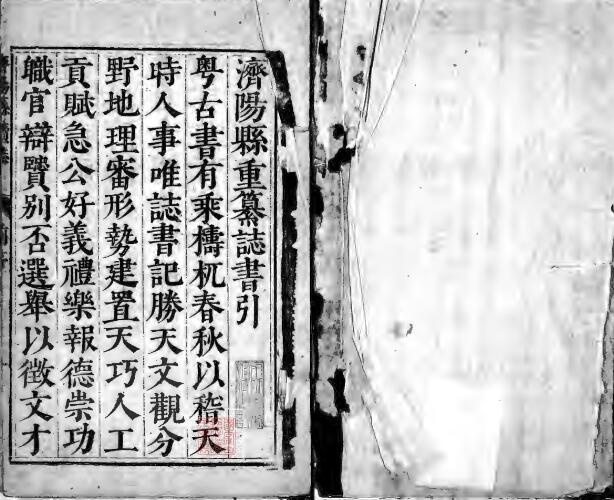 濟陽縣重纂誌書引
粤古書有乘檮杌春秋以稽天
時人事唯誌書記勝天文觀分
野地理審形勢建置天巧人工
貢賦急公好義禮樂報德崇功
職官辯賢别否選舉以徵文才